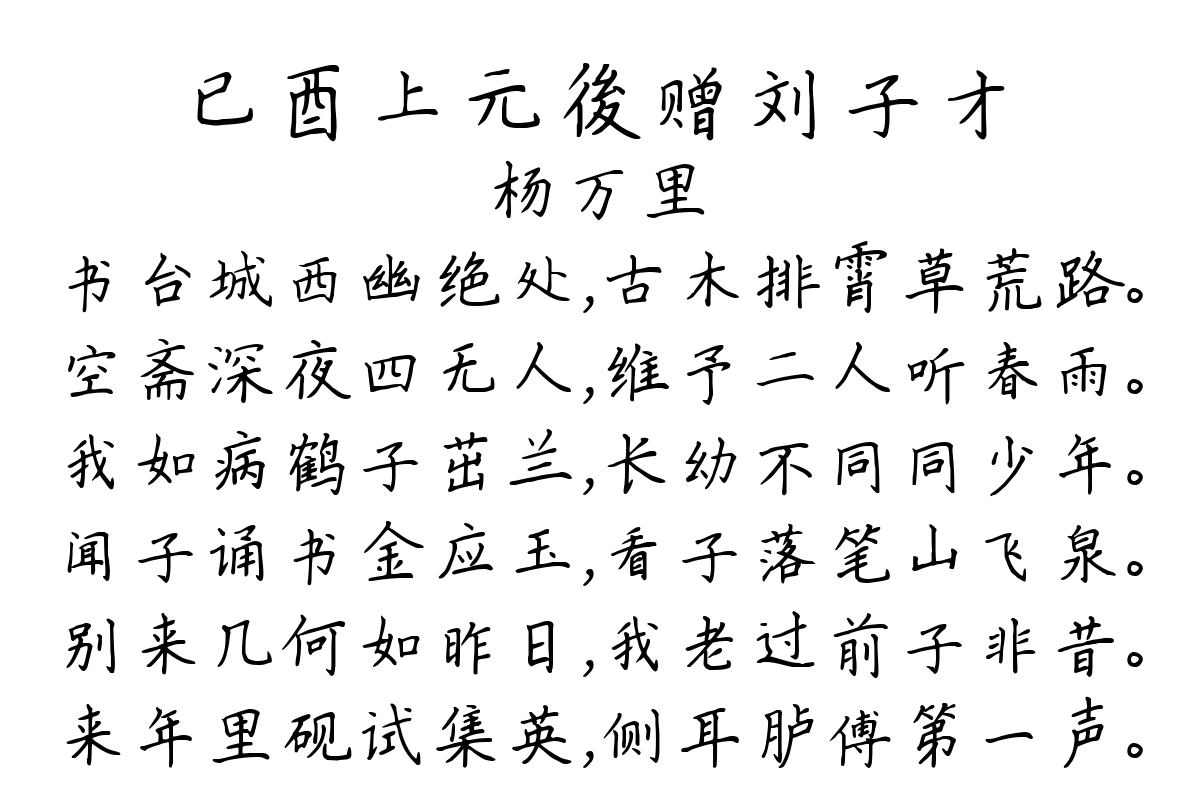 已酉上元後赠刘子才
杨万里
书台城西幽绝处,古木排霄草荒路。
空斋深夜四无人,维予二人听春雨。
我如病鹤子茁兰,长幼不同同少年。
闻子诵书金应玉,看子落笔山飞泉。
别来几何如昨日,我老过前子非昔。
来年里砚试集英,侧耳胪傅第一声。